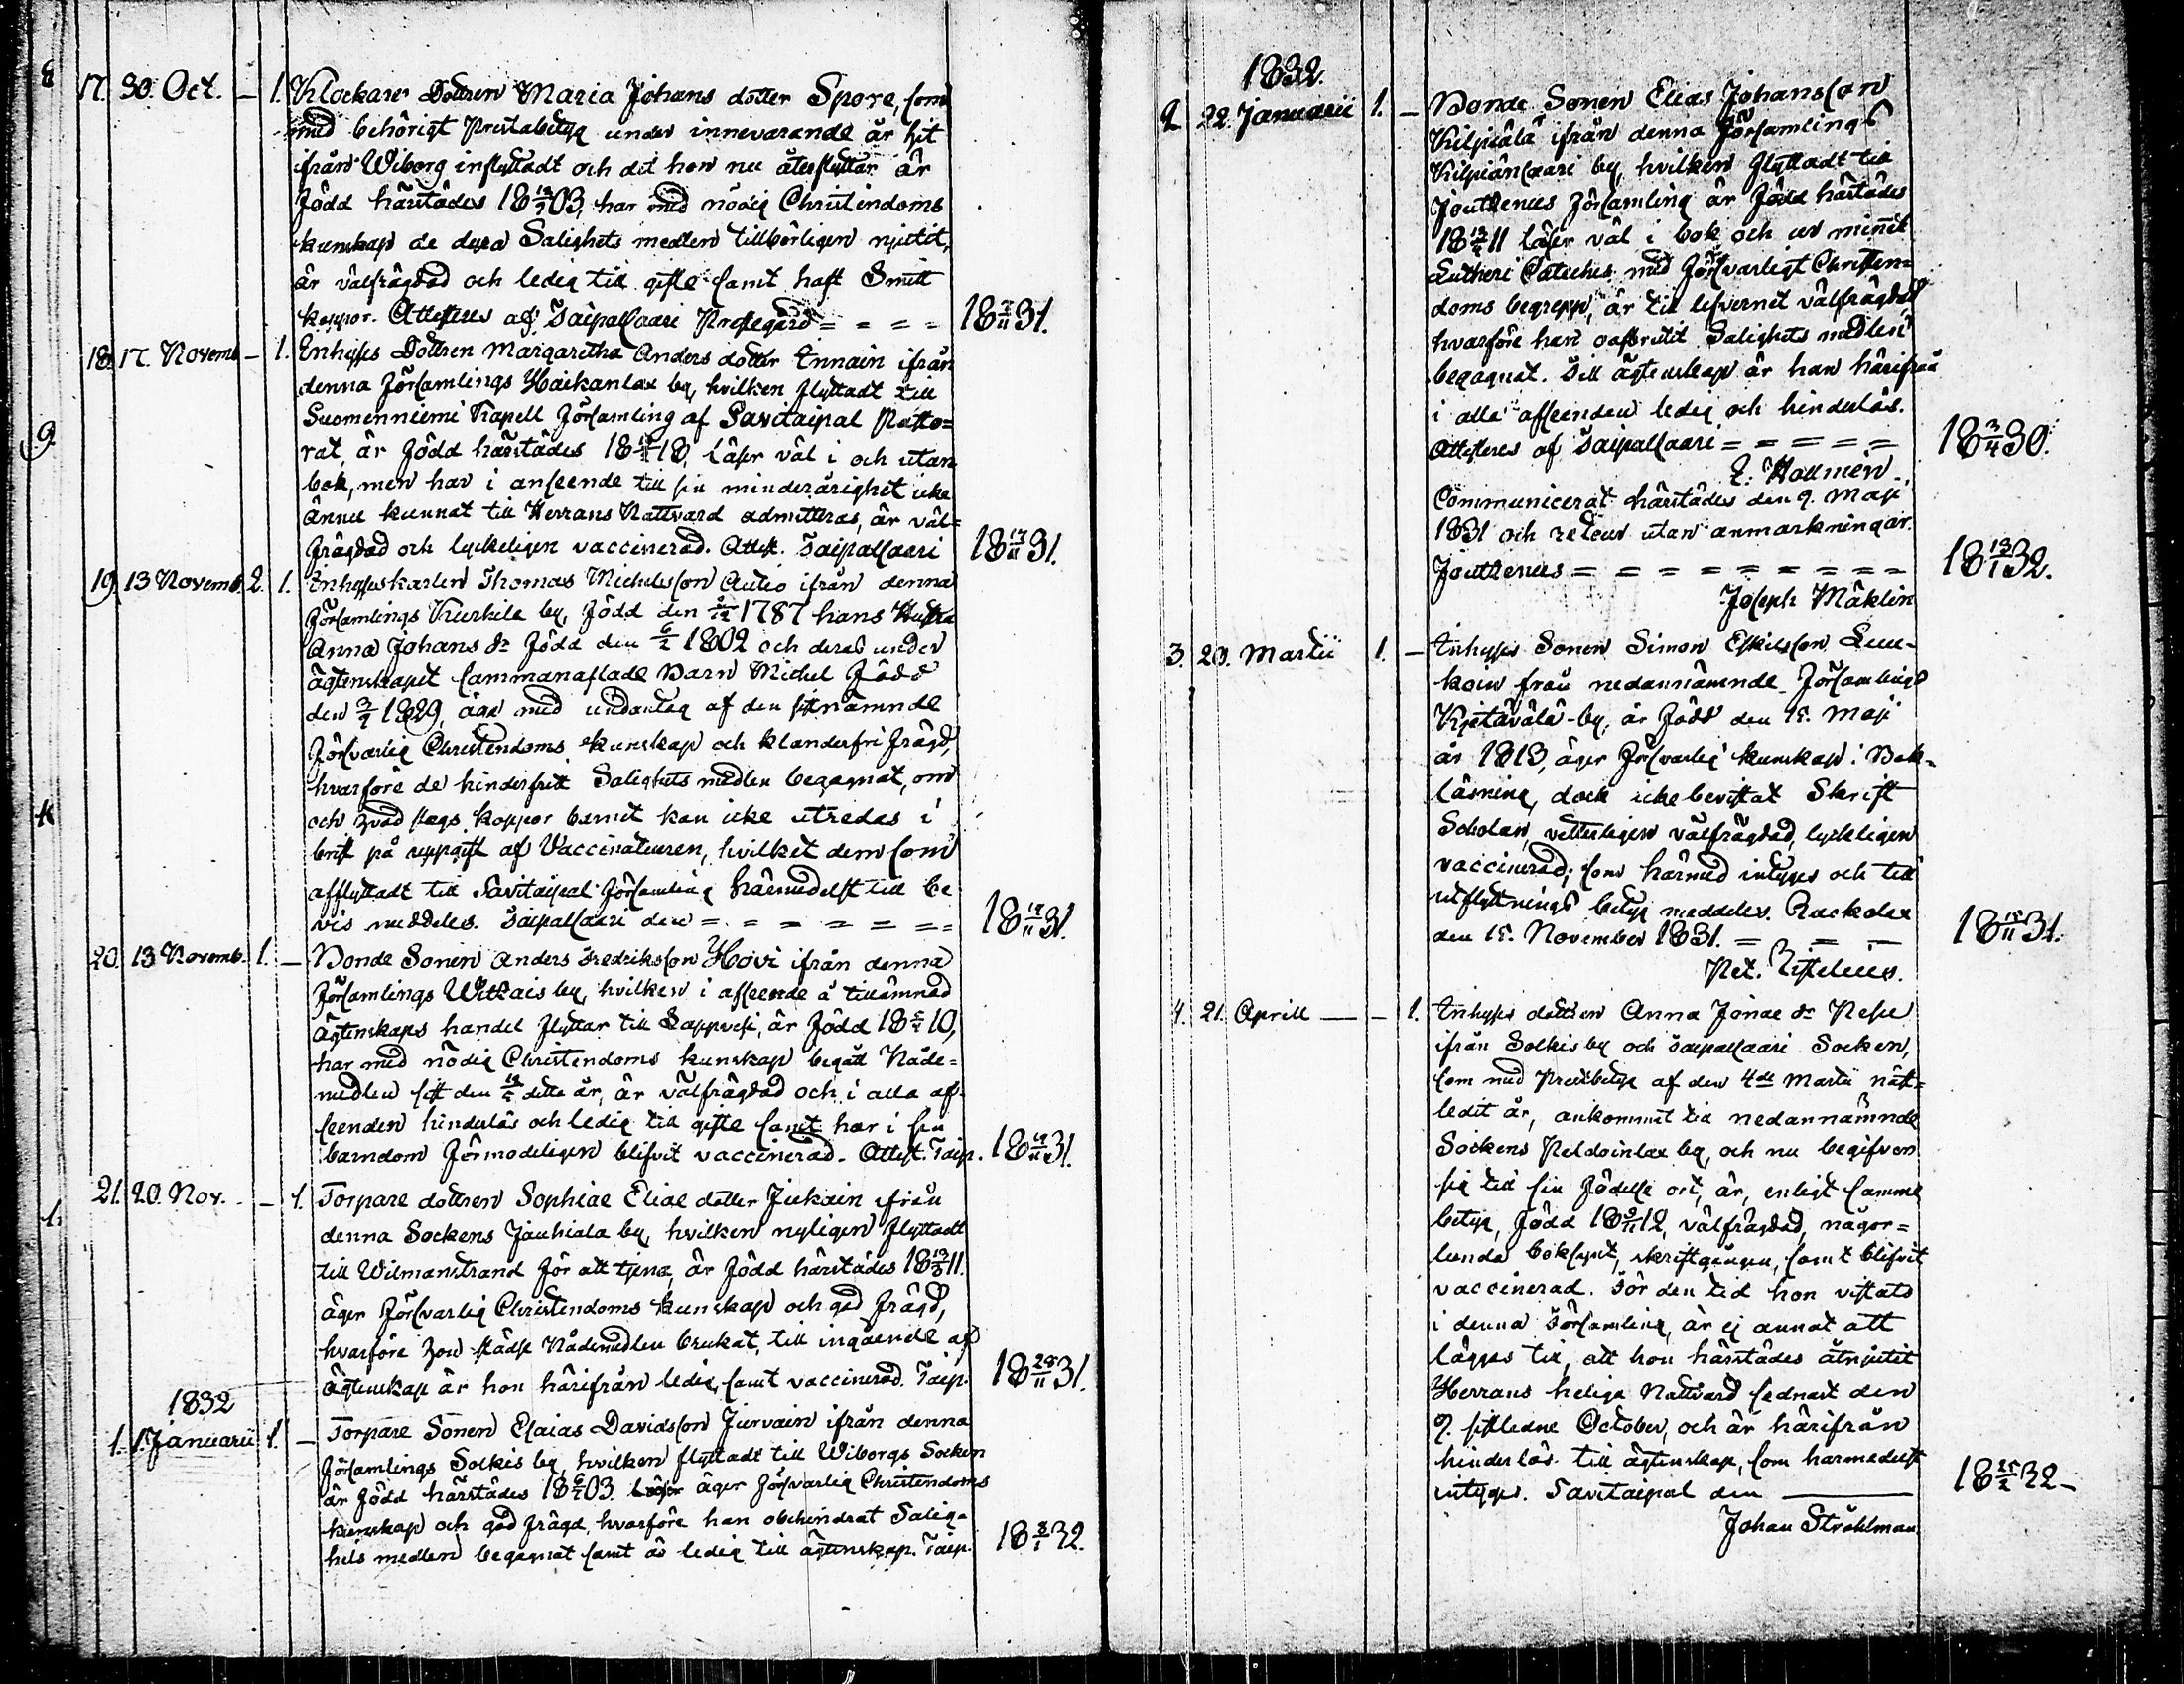 17. 30. Oct. — 1. Klockare Dottren Maria Johans dotter Spore, som
med behörigt Prestabetyg under innevarande år hit
ifrån Wiborg inflyttadt och dit hon nu återflyttar är
född härstädes 18 12/7 03, har med nödig Christendoms
kunskap de dyra Salighets medlen tillbörligen njutit,
är välfrägdad och ledig till gifte samt haft Smitt
koppor. Attesteres af Saipallsaari Prestegård = = = = 18 2/11 31.
18. 17. Novemb — 1. Enhyses Dottren Margaretha Anders dotter Ennain ifrån
denna församlings Haikanlax by, hvilken flyttadt till
Suomenniemi Kapell församling af Savitaipal Pasto=
rat, är född härstädes 18 18, Läser väl i och utan
bok, men har i anseende till sin minderårighet icke
ännu kunnat till Herrans Nattvard admitteras, är väl=
frägdad och lyckeligen vaccinerad. Attest. Saipallsaari 18 17/11 31.
19. 13 Novemb. 2. 1. Enhyseskarlen Thomas Michelsson Autio ifrån denna
församlings Kurhila by, född den 1787 hans Hustru
Anna Johans dr född den 6/2 1802 och deras under
ägtenskapet sammanaflade Barn Michel född
den 3/9 1829, äga med undantag af den sistnämnde
försvarlig Christendoms kunskap och klanderfri frägd,
hvarföre de hinderfritt Salighets medlen begagnat, om
och hvad slags koppor barnet kan icke utredas i
brist på uppgift af Vaccinateuren, hvilket dem som
afflyttadt till Savitaipal församling härmedelst till be
vis meddeles. Saipallsaari den = = = = = = = 18 18/11 31.
20. 13 Novemb. 1. — Bonde Sonen Anders Fredriksson Hovi ifrån denna
församlings Witsais by, hvilken i afseende å tillämnad
ägtenskaps handel flyttar till Lappvesi, är född 18 5/4 10,
har med nödig Christendoms kunskap begått Nåde=
medlen sist den dette år, är välfrägdad och i alla af=
seenden hinderlös och ledig till gifte samt har i sin
barndom förmodeligen blifvit vaccinerad. Attest. Saip. 18 18/11 31.
21. 20. Nov. — 1. Torpare dottren Sophiae Eliae dotter Jukain ifrån
denna Sockens Jauhiala by, hvilken nyligen flyttadt
till Wilmanstrand för att tjena, är född härstädes 18 11.
äger försvarlig Christendoms kunskap och god frägd,
hvarföre hon städse Nådemedlen brukat, till ingående af
ägtenskap är hon härifrån ledig, samt vaccinerad. Saip. 18 28/11 31.
1832
1. 1. Januarii 1. — Torpare Sonen Esaias Davidsson Jurvain ifrån denna
församlings Solkis by, hvilken flyttadt till Wiborgs Socken
är född härstädes 18 03. Läser äger försvarlig Christendoms
kunskap och god frägd, hvarföre han obehindrat Salig=
hets medlen begagnat samt är ledig till ägtenskap. Saip. 18 8/1 32.
1832.
2. 22. Januarii 1. — Bonde Sonen Elias Johansson
Kilpiälä ifrån denna församlings
Kilpiänsaari by, hvilken flyttadt till
Jouthenus församling är född härstädes
18 11 läser väl i bok och ur minnet
Lutheri Catechis. med försvarligt Christen=
doms begrepp, är till lefvernet välfrägdad
hvarföre han oafbrutit Salighets medlen
begagnat. Till ägtenskap är han härifrån
i alla afseenden ledig och hinderlös.
Attesteres af Saipallsaari = = = = = 18 3/4 30.
E. Hallmén.
Communicerat härstädes den 9. Maji
1831 och retour utan anmärkningar.
Jouthenus = = = = = = = = = 18 13/1 32.
Joseph Mäklin
3. 20. Martii 1. — Inhyses Sonen Simon Eskilsson Luu-
kain från nedannämnde församlings
Kietävälä by, är född den 15. Maji
år 1813, äger försvarlig kunskap i Bok-
läsning, dock icke bevistat Skrift
Scholan, vetterligen välfrägdad, lyckligen
vaccinerad; som härmed intyges och till
utflyttnings betyg meddeles. Ruokolax
den 15. November 1831. = — — 18 15/11 31.
Pet.
4. 21. Aprill — — 1. Inhyses dottren Anna Jonae dr Pesu
ifrån Solkis by och Saipallsaari Socken,
som med Prestbetyg af den 4de Martii näst=
ledit år, ankommit till nedannämnde
Sockens Peldoinlax by, och nu begifver
sig till sin födelse ort, är, enligt samma
betyg, född 18 9/11 12, välfrägdad, någor=
lunda bokläst, skriftgången, samt blifvit
vaccinerad. För den tid hon vistats
i denna församling, är ej annat att
läggas till, att hon härstädes åtnjutit
Herrans heliga Nattvard sednast den
9. sistledne October, och är härifrån
hinderlös till ägtenskap, som härmedelst
intyges. Savitaipal den — 18 25/2 32 -
Johan Stråhlman